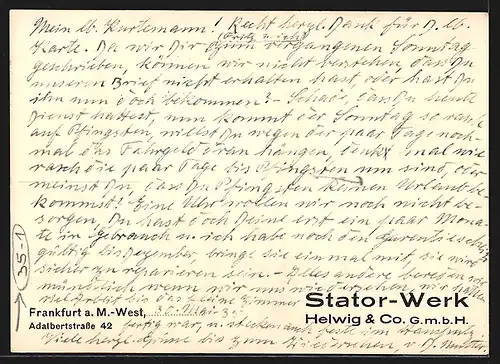 Mein lb. Kurtemann! Recht herzl. Dank für D. lb.
Karte. Da wir Dir zum vergangenen Sonntag
geschrieben, können wir nicht verstehen, dass Du
unseren Brief nicht erhalten hast, oder hast Du
ihn nun doch bekommen? - Schade, dass Du heute
Dienst hattest, nun kommt der Sonntag so rasch
auf Pfingsten, willst Du wegen der paar Tage noch-
mal das Fahrgeld dran hängen, denk mal wie
rasch die paar Tage bis Pfingsten um sind, oder
meinst Du, dass Du Pfingsten keinen Urlaub be-
kommst? Eine Uhr wollen wir noch nicht be-
sorgen, Du hast doch Deine erst ein paar Mona-
te in Gebrauch u. ich habe noch den Garantieschein
gültig bis Dezember, bringe sie einmal mit, sie wird
sicher zu reparieren sein. - Alles andere bereden wir
mündlich wenn wir uns wiedersehen, wir
viel Arbeit bis das kleine Zimmer
fertig war, u. stecken auch
Viele herzl. Grüsse bis zum Wiedersehen v. D. Mutter.
35-1
Frankfurt a. M.-West,
Adalbertstraße 42
Stator-Werk
Helwig & Co. G.m.b.H.